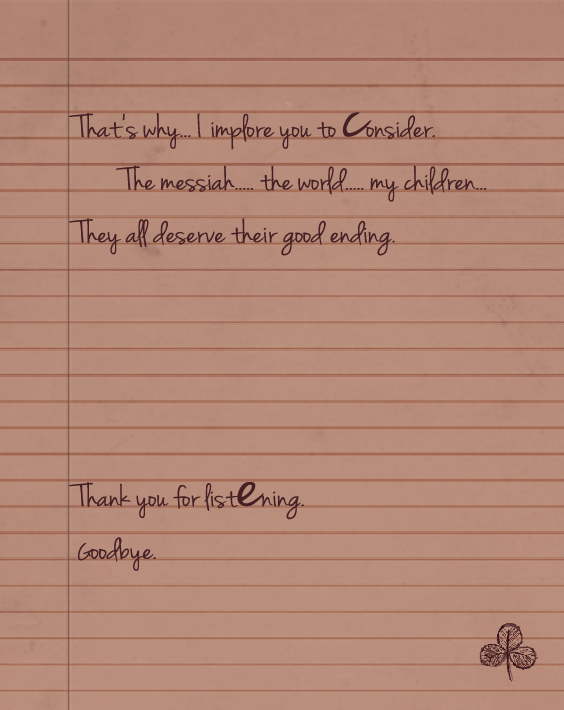 That's why... I implore you to Consider.
The messiah..... the world..... my children...
They all deserve their good ending.
Thank you for listening.
Goodbye.